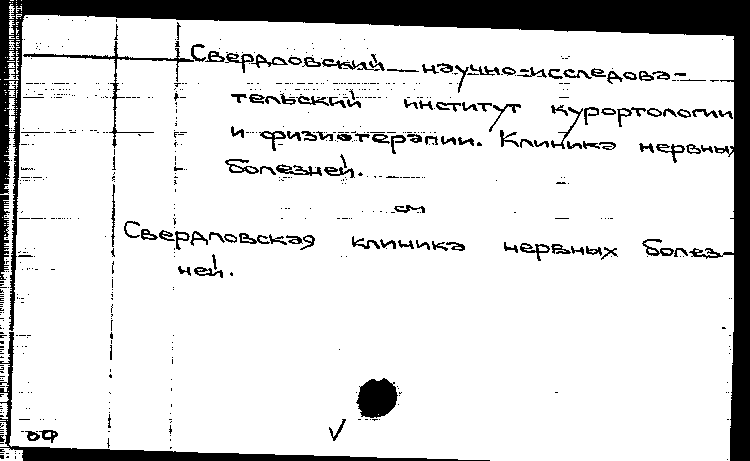 Свердловский научно-исследова-
тельский институт курортологии
и физиотерапии. Клиника нервных
болезней.
см
Свердловская клиника нервных болез-
ней.